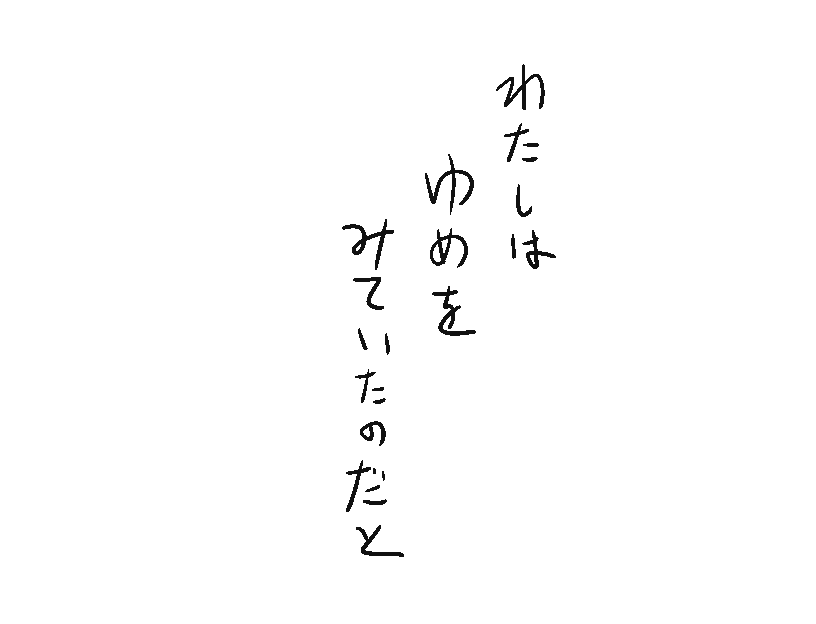 わたしは
ゆめを
みていたのだと